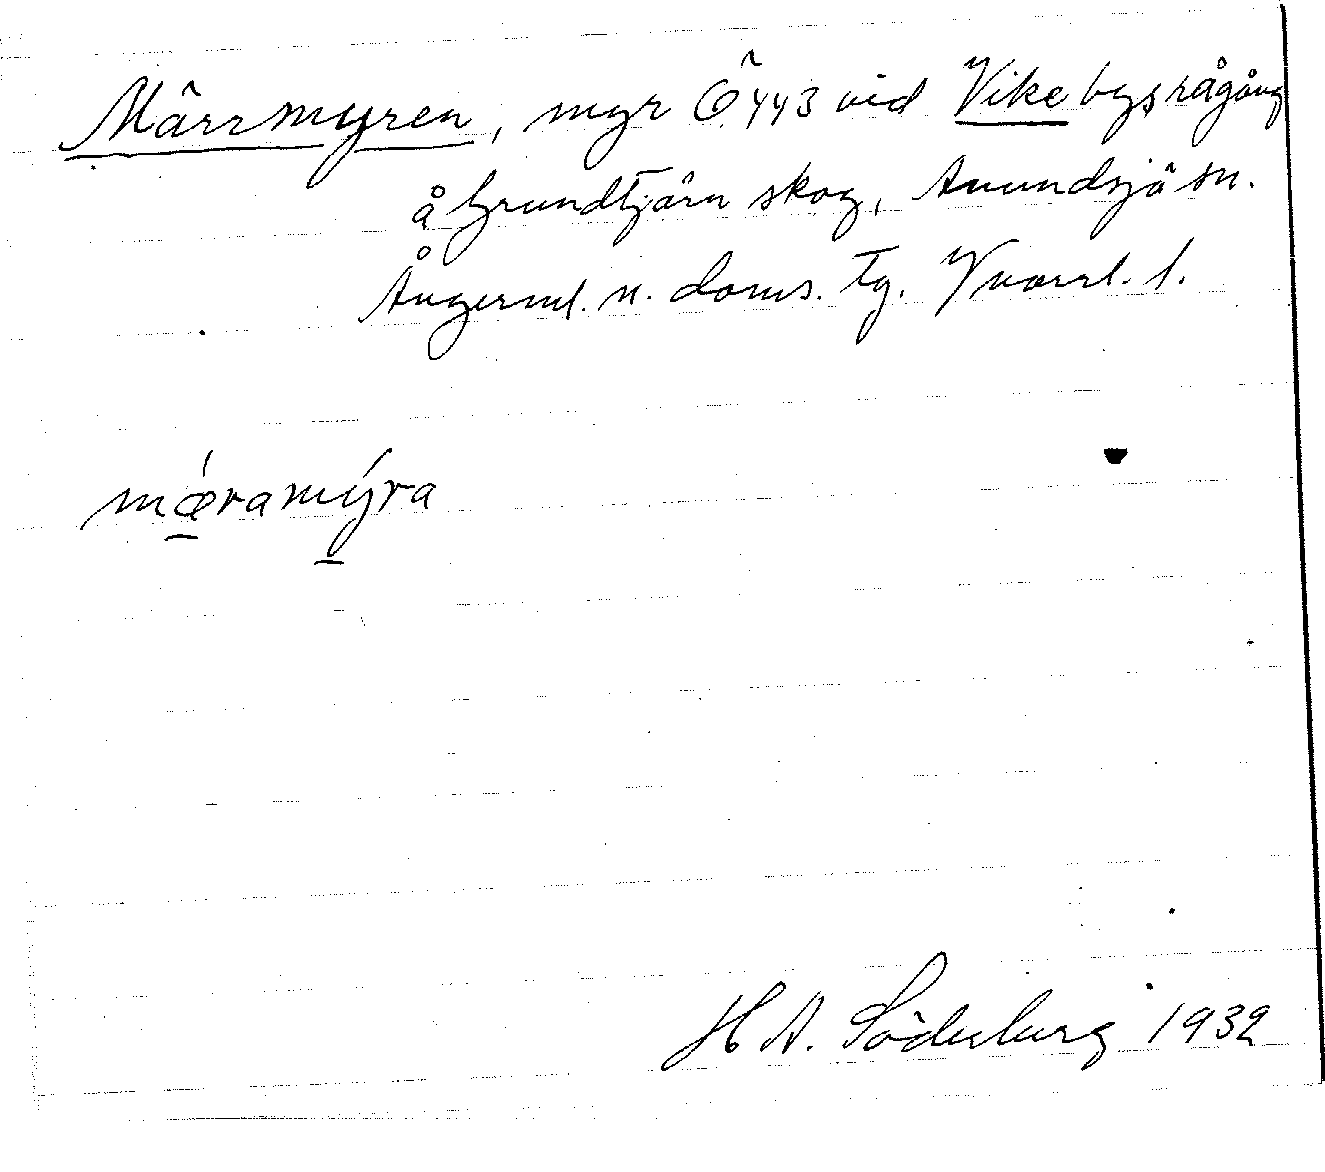 Märrmyren, myr Ö 443 vid Vike bys rågång
å Grundtjärn skog, Anundsjö sn.
Ångerml. n. doms. tg. Vnorrl. l.
mǽramýra
H A. Söderberg 1932